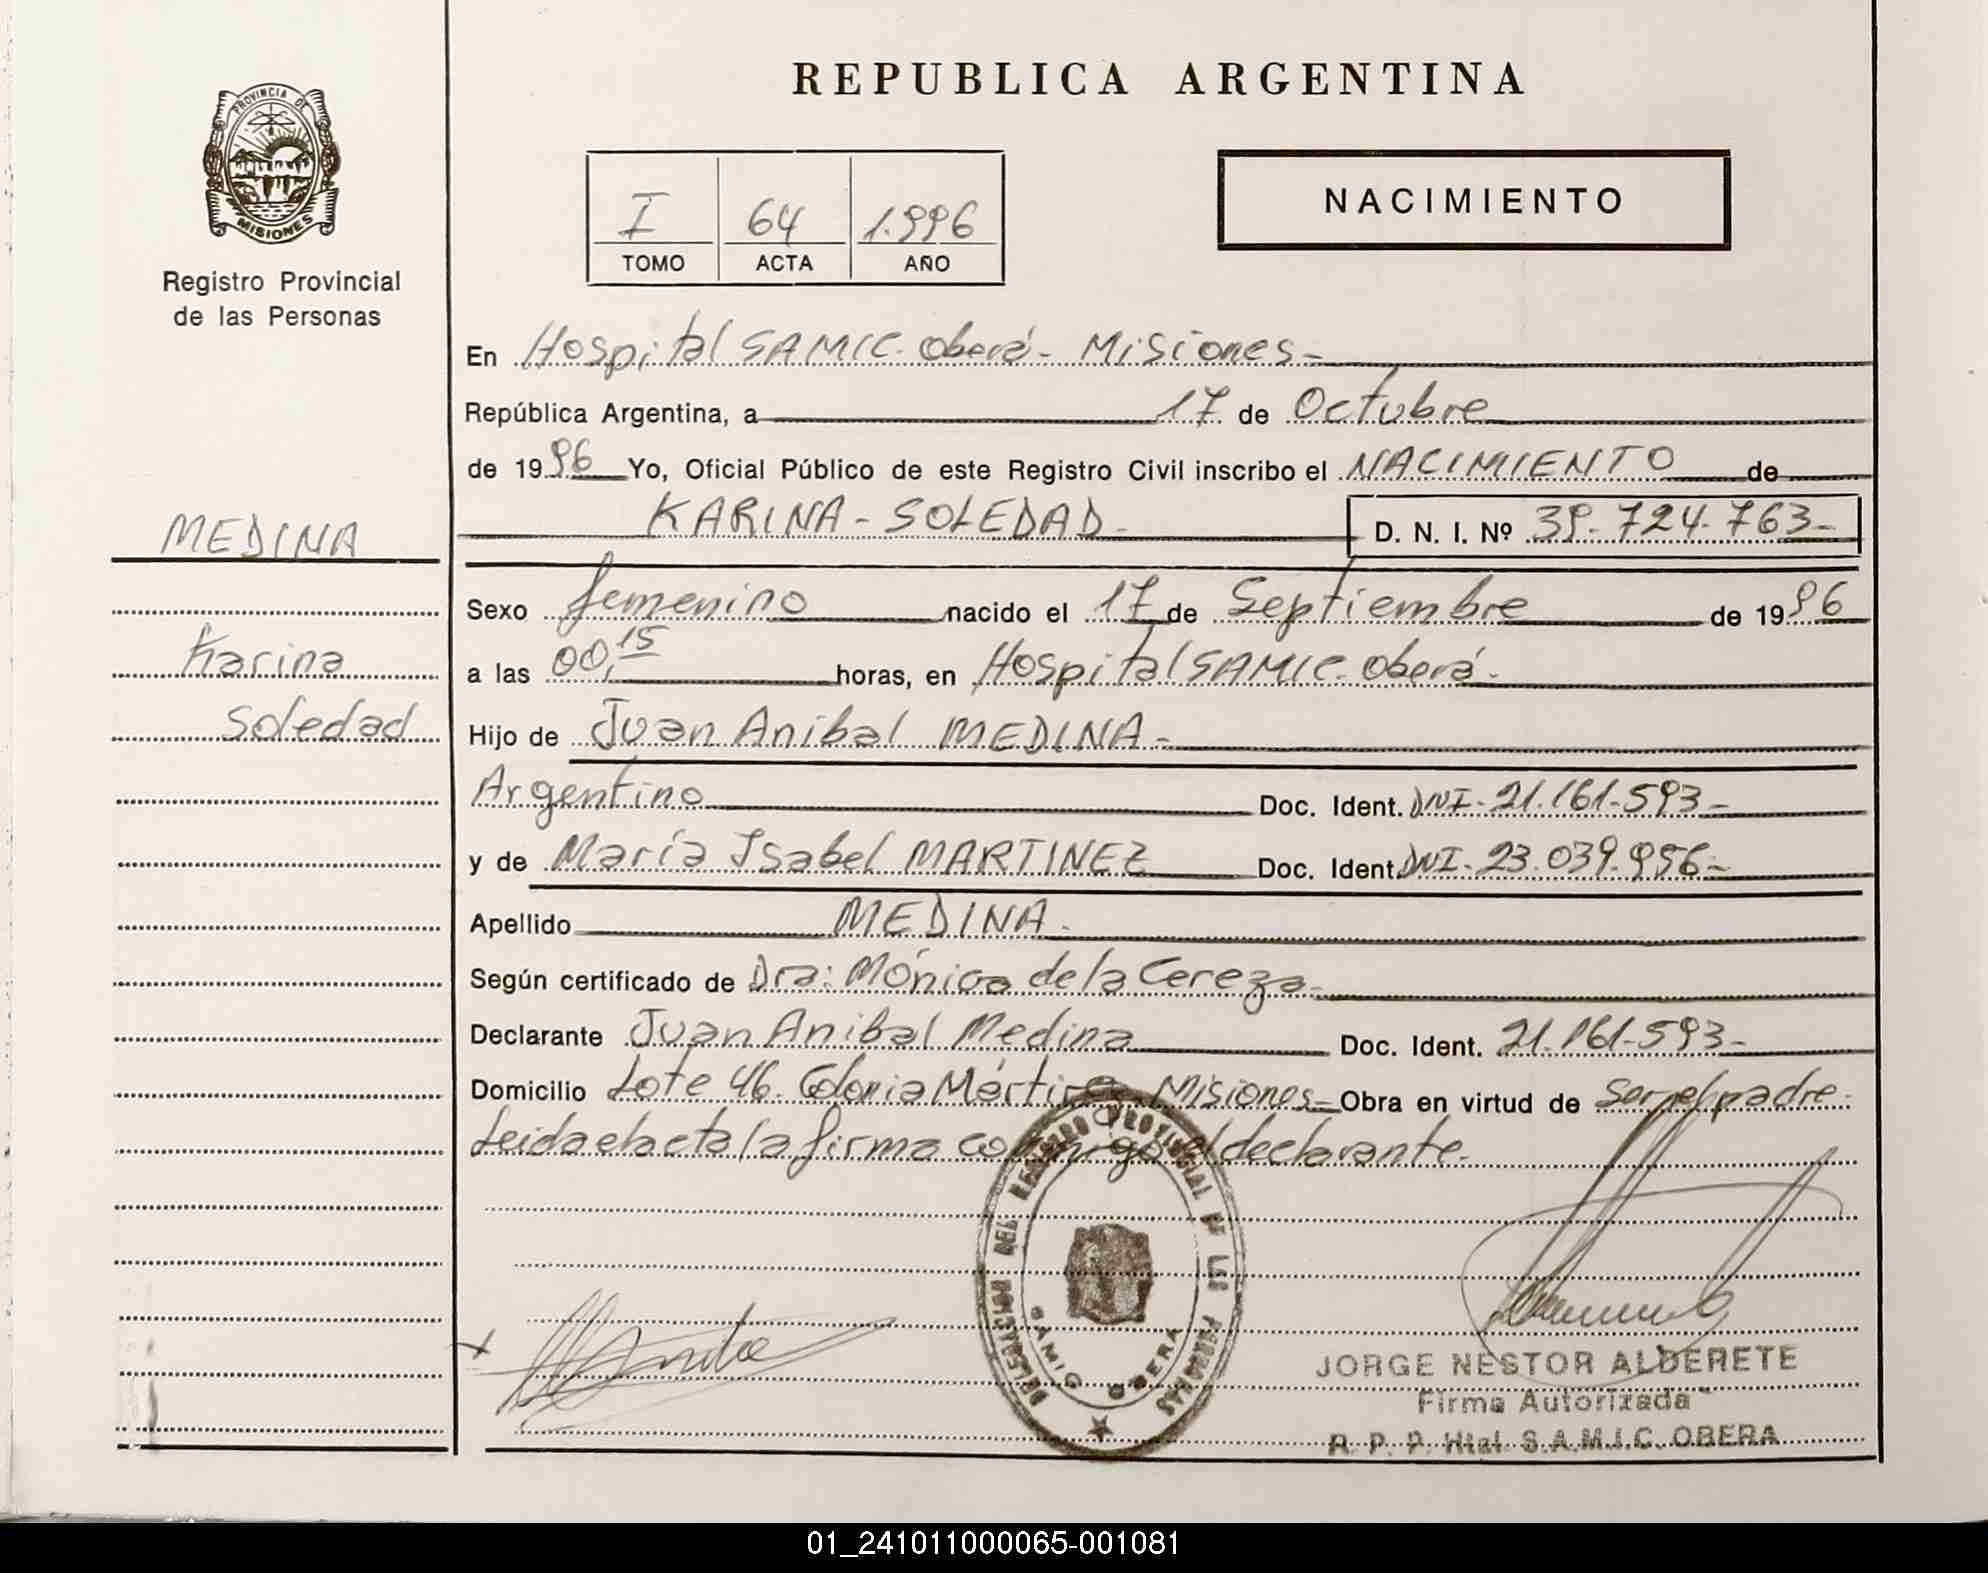 REPUBLICA ARGENTINA
PROVINCIA DE
MISIONES
Registro Provincial
de las Personas
I 64 1.996
TOMO ACTA AÑO
NACIMIENTO
En Hospital SAMIC. Oberá- Misiones-
República Argentina, a 17 de Octubre
de 1996 Yo, Oficial Público de este Registro Civil inscribo el NACIMIENTO de
KARINA-SOLEDAD- D. N. I. Nº 39.724.763-
MEDINA
Karina
Soledad
Sexo femenino nacido el 17 de Septiembre de 1996
a las 00,15 horas, en Hospital SAMIC. Oberá-
Hijo de Juan Anibal MEDINA-
Argentino Doc. Ident. DNI-21.161.593-
y de María Isabel MARTINEZ Doc. Ident. DNI-23.039.956-
Apellido MEDINA-
Según certificado de Dra: Mónica de la Cereza-
Declarante Juan Anibal Medina Doc. Ident. 21.161.593-
Domicilio Lote 46. Colonia Mártires Misiones- Obra en virtud de ser el padre.
Leida el acta la firma conmigo el declarante.
DELEGACION DEL REGISTRO PROVINCIAL DE LAS PERSONAS
SAMIC OBERA
JORGE NESTOR ALDERETE
Firma Autorizada
R. P. P. Htal. S.A.M.I.C. OBERA
01_241011000065-001081